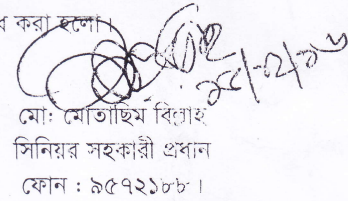 করা হলো।
মো: মোতাছিম বিল্লাহ
সিনিয়র সহকারী প্রধান
ফোন : ৯৫৭২১৮৮।